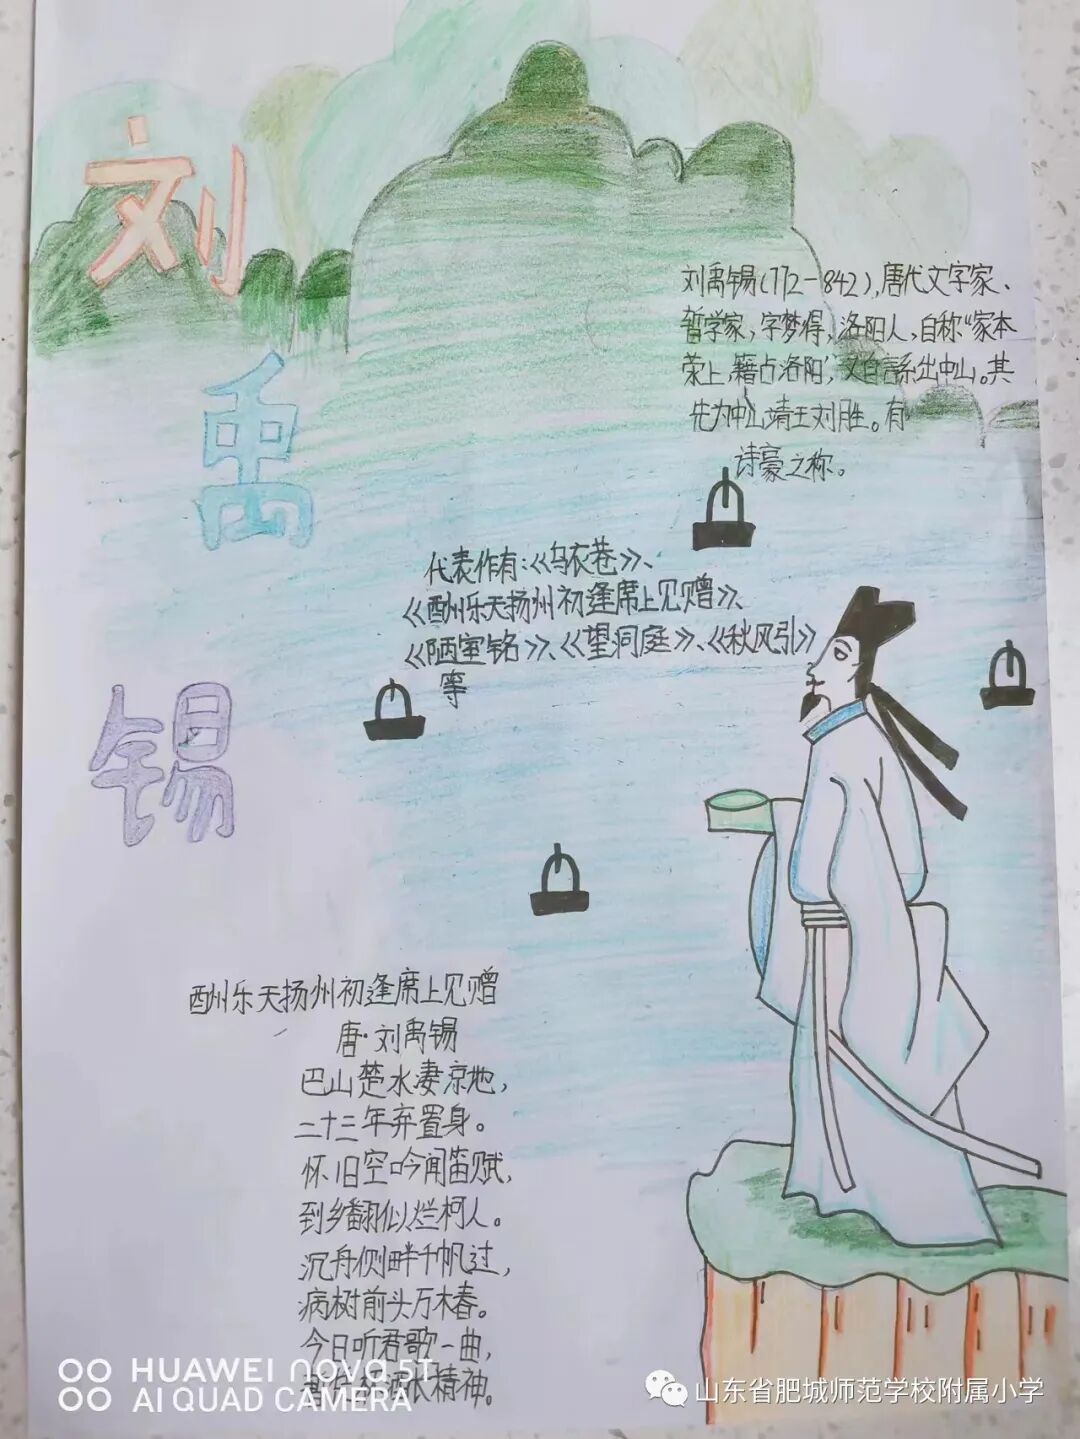 刘
禹
锡
刘禹锡(772-842),唐代文学家、
哲学家,字梦得,洛阳人,自称“家本
荥上,籍占洛阳”,又自言系出中山。其
先为中山靖王刘胜。有
诗豪之称。
代表作有:《乌衣巷》、
《酬州乐天扬州初逢席上见赠》、
《陋室铭》、《望洞庭》、《秋风引》
等
酬州乐天扬州初逢席上见赠
唐·刘禹锡
巴山楚水凄凉地,
二十三年弃置身。
怀旧空吟闻笛赋,
到乡翻似烂柯人。
沉舟侧畔千帆过,
病树前头万木春。
今日听君歌一曲,
精神。
HUAWEI nova 5T
AI QUAD CAMERA
山东省肥城师范学校附属小学